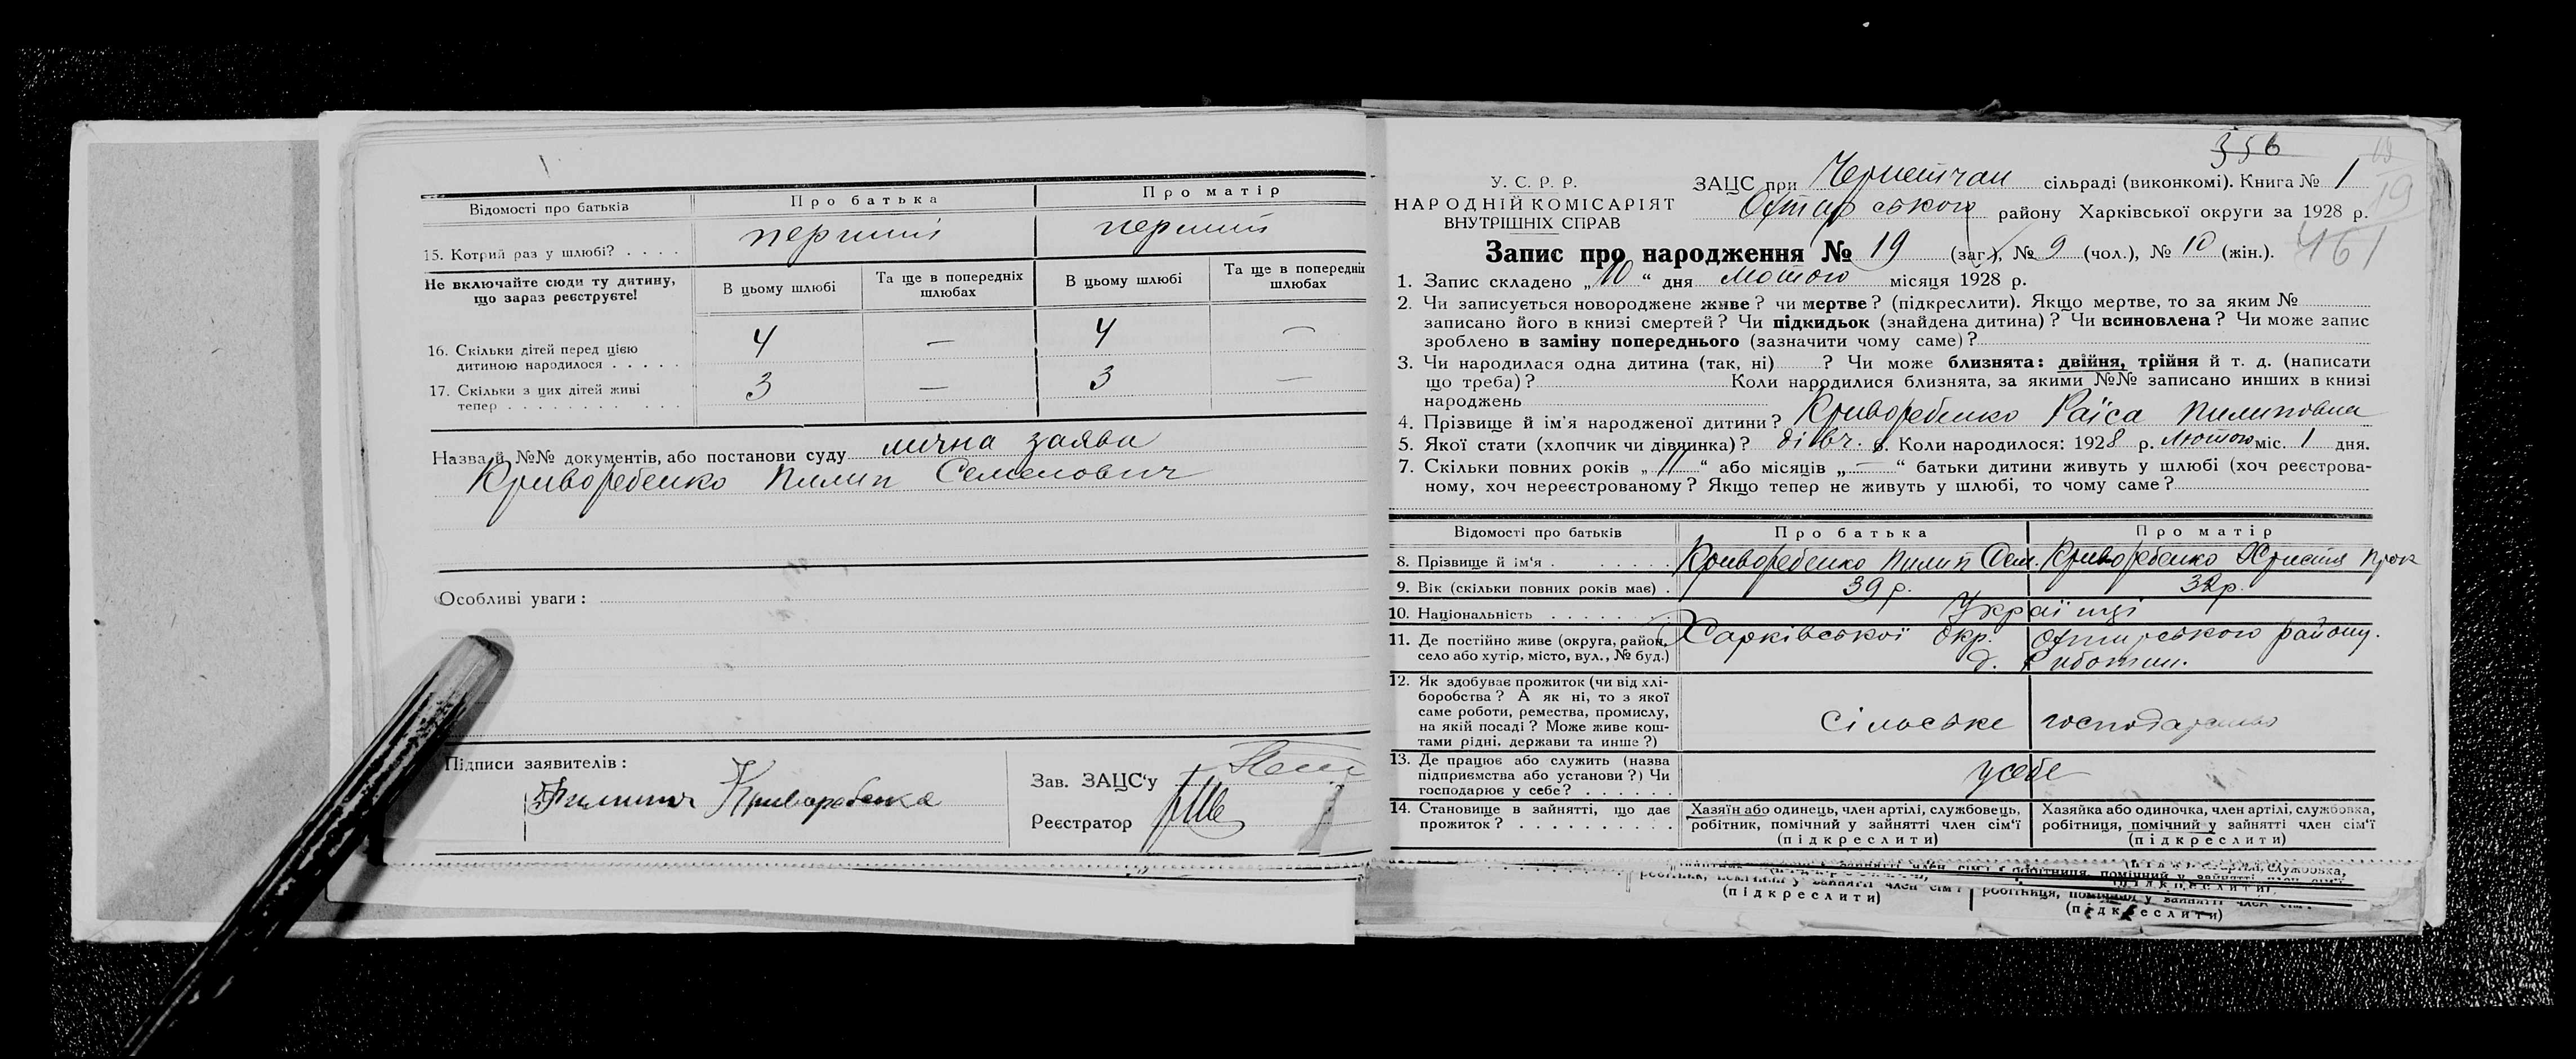 Відомості про батьків
Про батька
Про матір
15. Котрий раз у шлюбі? . . . .
перший
перший
Не включайте сюди ту дитину,
що зараз реєструєте!
В цьому шлюбі
Та ще в попередніх
шлюбах
В цьому шлюбі
Та ще в попередніх
шлюбах
16. Скільки дітей перед цією
дитиною народилося . . . . .
4
—
4
—
17. Скільки з цих дітей живі
тепер . . . . . . . . . . .
3
—
3
—
Назва й №№ документів, або постанови суду лична заява
Криворебенко Пилип Семенович
Особливі уваги:
Підписи заявителів:
Криваребенка
Зав. ЗАЦС'у
Реєстратор
356
19
461
У. С. Р. Р.
НАРОДНІЙ КОМІСАРІЯТ
ВНУТРІШНІХ СПРАВ
ЗАЦС при сільраді (виконкомі). Книга № 1
ського району Харківської округи за 1928 р.
Запис про народження № 19 (заг.), № 9 (чол.), № 10 (жін.).
1. Запис складено „10“ дня Лютого місяця 1928 р.
2. Чи записується новороджене живе? чи мертве? (підкреслити). Якщо мертве, то за яким №
записано його в книзі смертей? Чи підкидьок (знайдена дитина)? Чи всиновлена? Чи може запис
зроблено в заміну попереднього (зазначити чому саме)?
3. Чи народилася одна дитина (так, ні) ? Чи може близнята: двійня, трійня й т. д. (написати
що треба)? Коли народилися близнята, за якими №№ записано инших в книзі
народжень
4. Прізвище й ім'я народженої дитини? Криворебенко Раїса Пилиповна
5. Якої стати (хлопчик чи дівчинка)? дівч. 6. Коли народилося: 1928 р. Лютого міс. 1 дня.
7. Скільки повних років „11“ або місяців „—“ батьки дитини живуть у шлюбі (хоч реєстрова-
ному, хоч нереєстрованому? Якщо тепер не живуть у шлюбі, то чому саме?
Відомості про батьків
Про батька
Про матір
8. Прізвище й ім'я . . . . . . . .
Криворебенко Пилип Сем.
Криворебенко Христя Прок
9. Вік (скільки повних років має) .
39 р.
32 р.
10. Національність . . . . . . . .
Українці
11. Де постійно живе (округа, район,
село або хутір, місто, вул., № буд.)
Харківської Окр. району.
12. Як здобуває прожиток (чи від хлі-
боробства? А як ні, то з якої
саме роботи, ремества, промислу,
на якій посаді? Може живе кош-
тами рідні, держави та инше?)
Сільське господарство
13. Де працює або служить (назва
підприємства або установи?) Чи
господарює у себе? . . . . . .
у себе
14. Становище в зайнятті, що дає
прожиток? . . . . . . . . . .
Хазяїн або одинець, член артілі, службовець,
робітник, помічний у зайнятті член сім'ї
(підкреслити)
Хазяйка або одиночка, член артілі, службовка,
робітниця, помічний у зайнятті член сім'ї
(підкреслити)
(підкреслити)
(підкреслити)